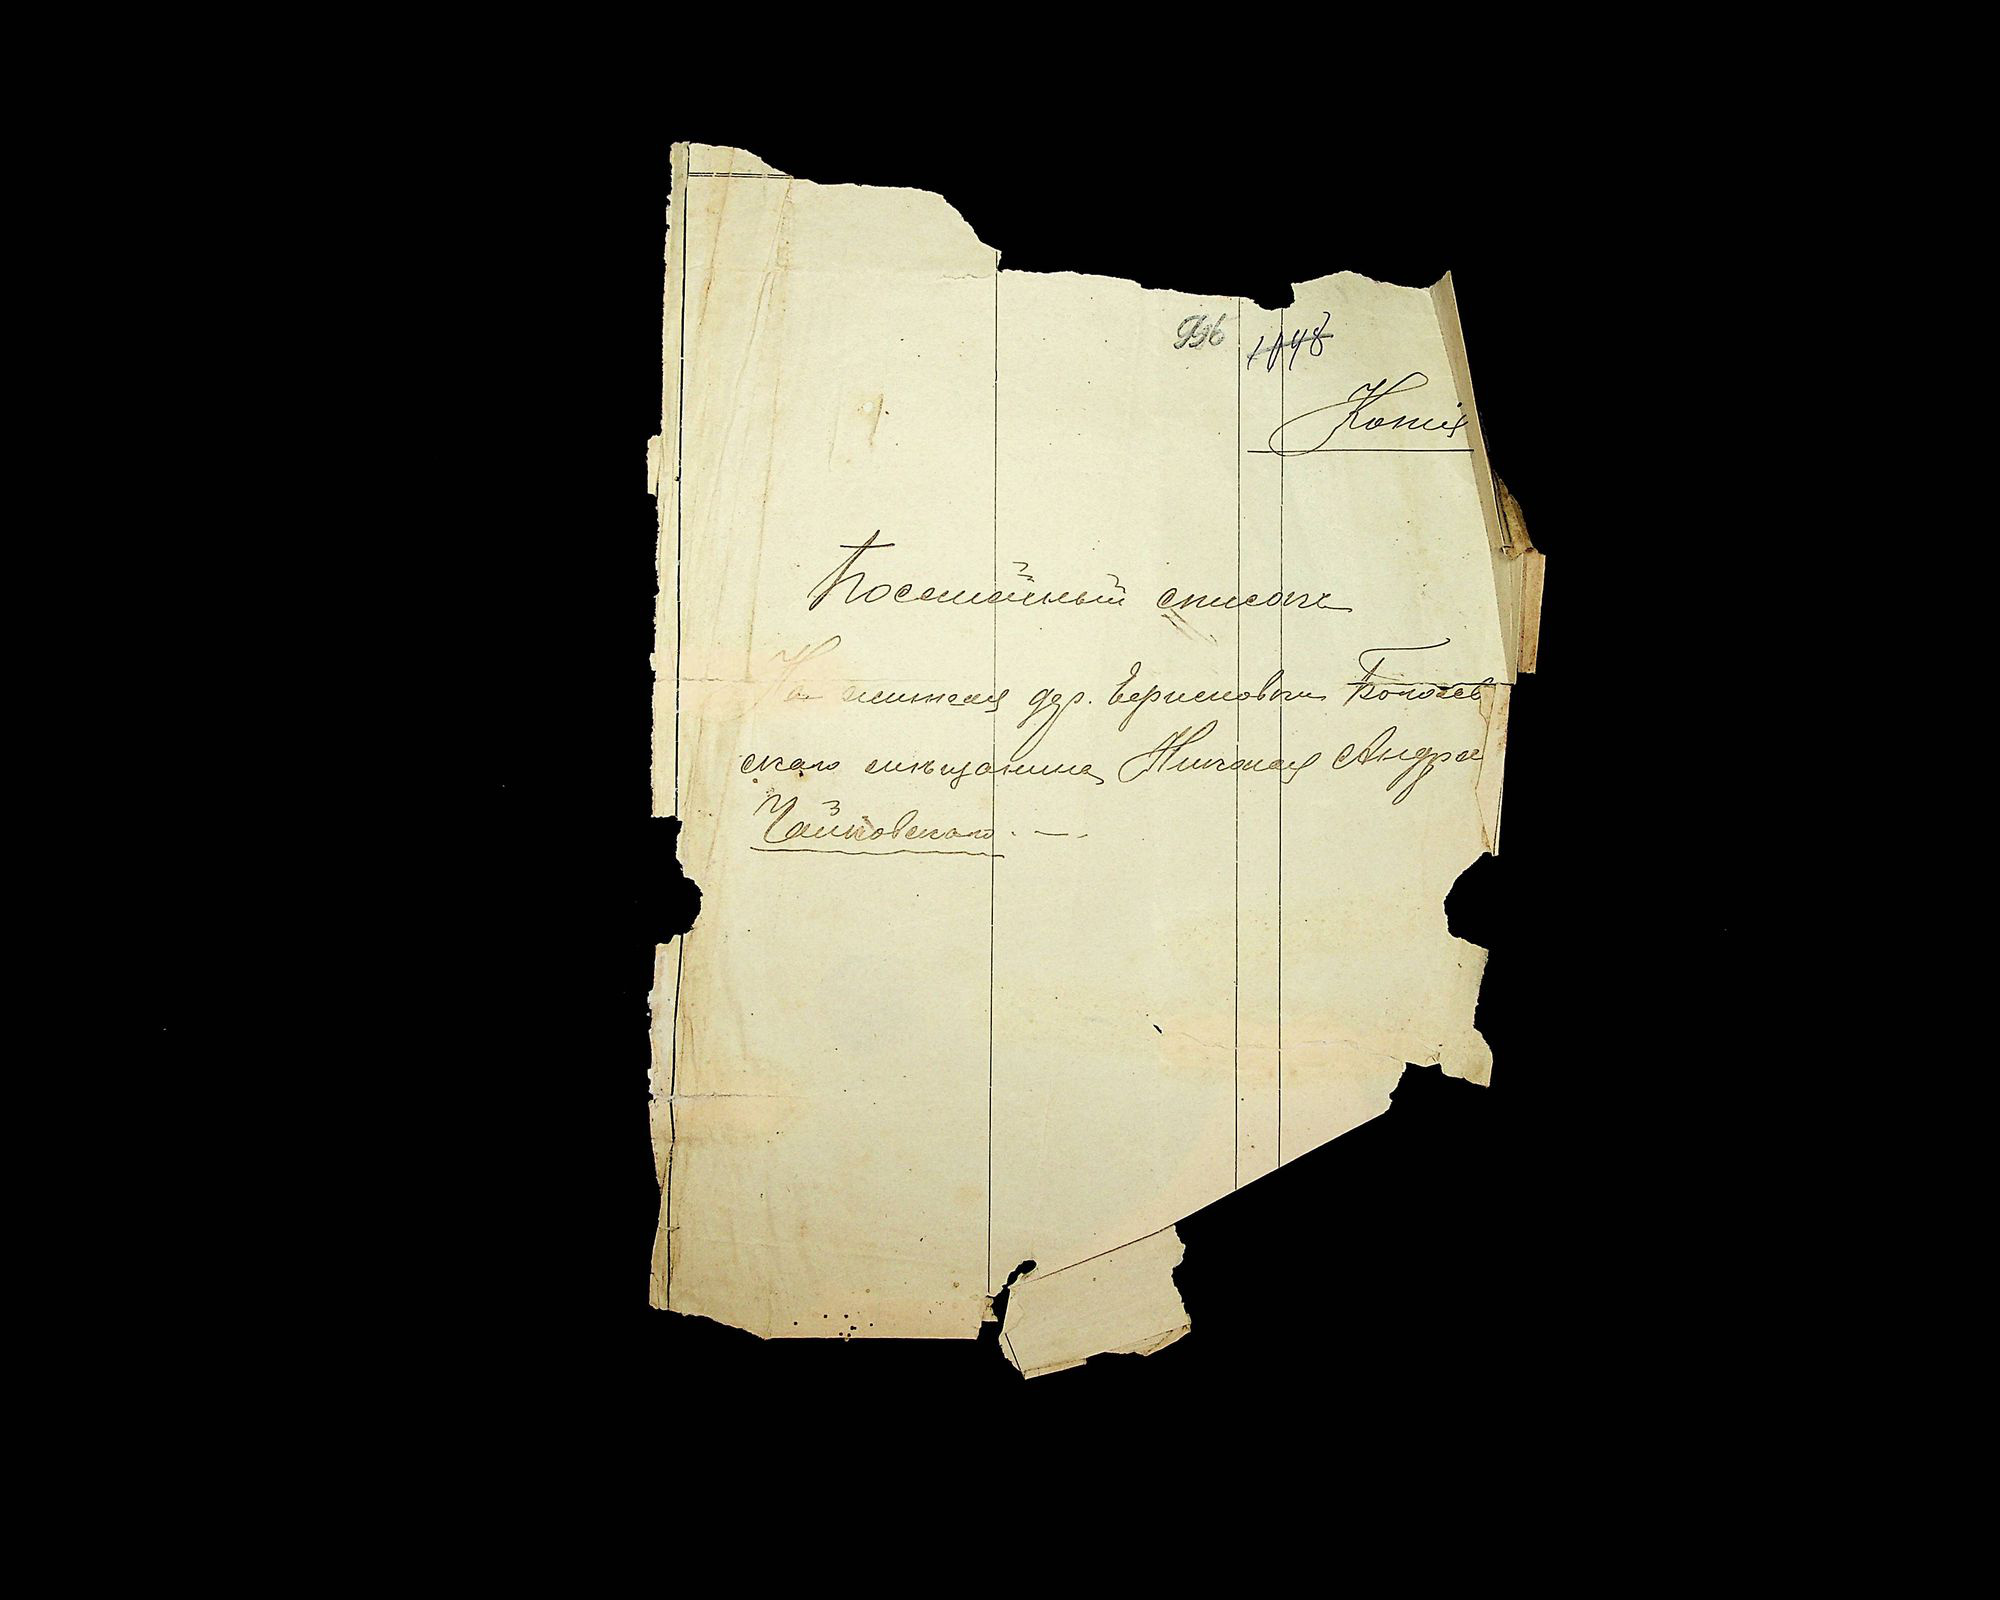 996 1048
Копія
Посемейный списокъ
На жителя дер. Борисовки Боготов
скаго мѣщанина Николая Андре
Чайковскаго. —